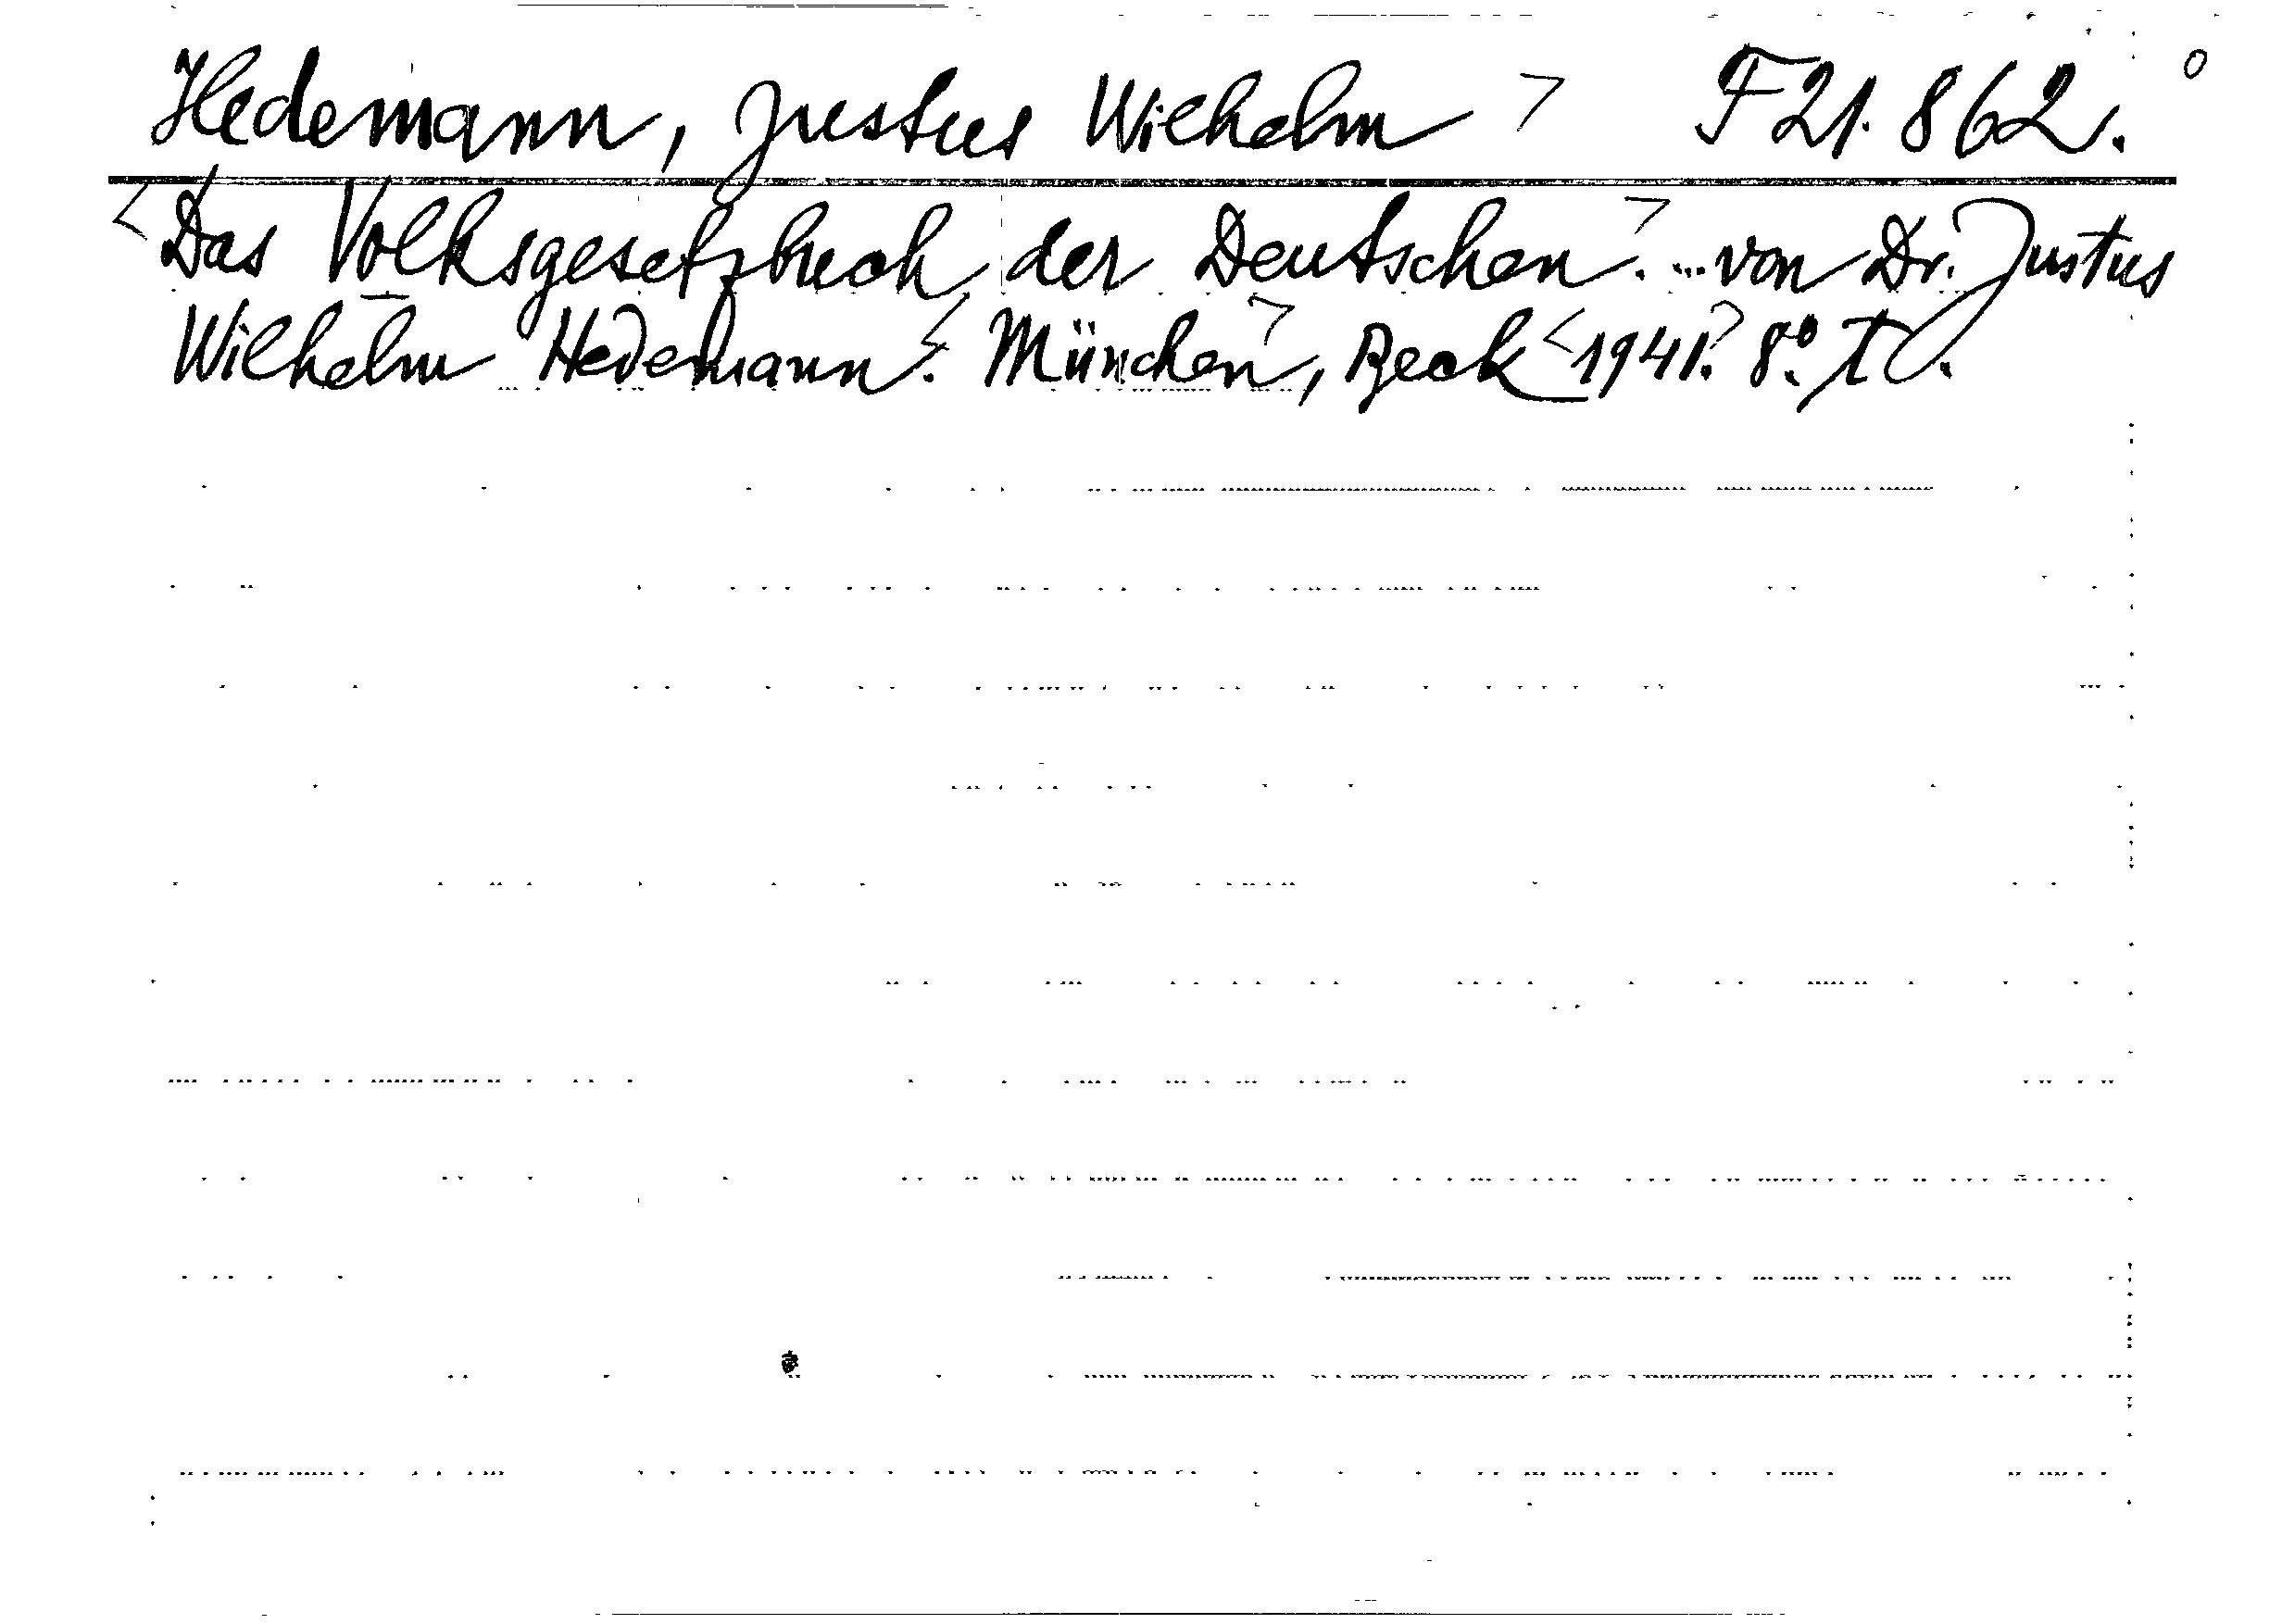 Hedemann, Justus Wilhelm > F 21.862. °
<Das Volksgesetzbuch der Deutschen.> ... von Dr. Justus
Wilhelm Hedemann. < München>, Beck <1941.> 8°.